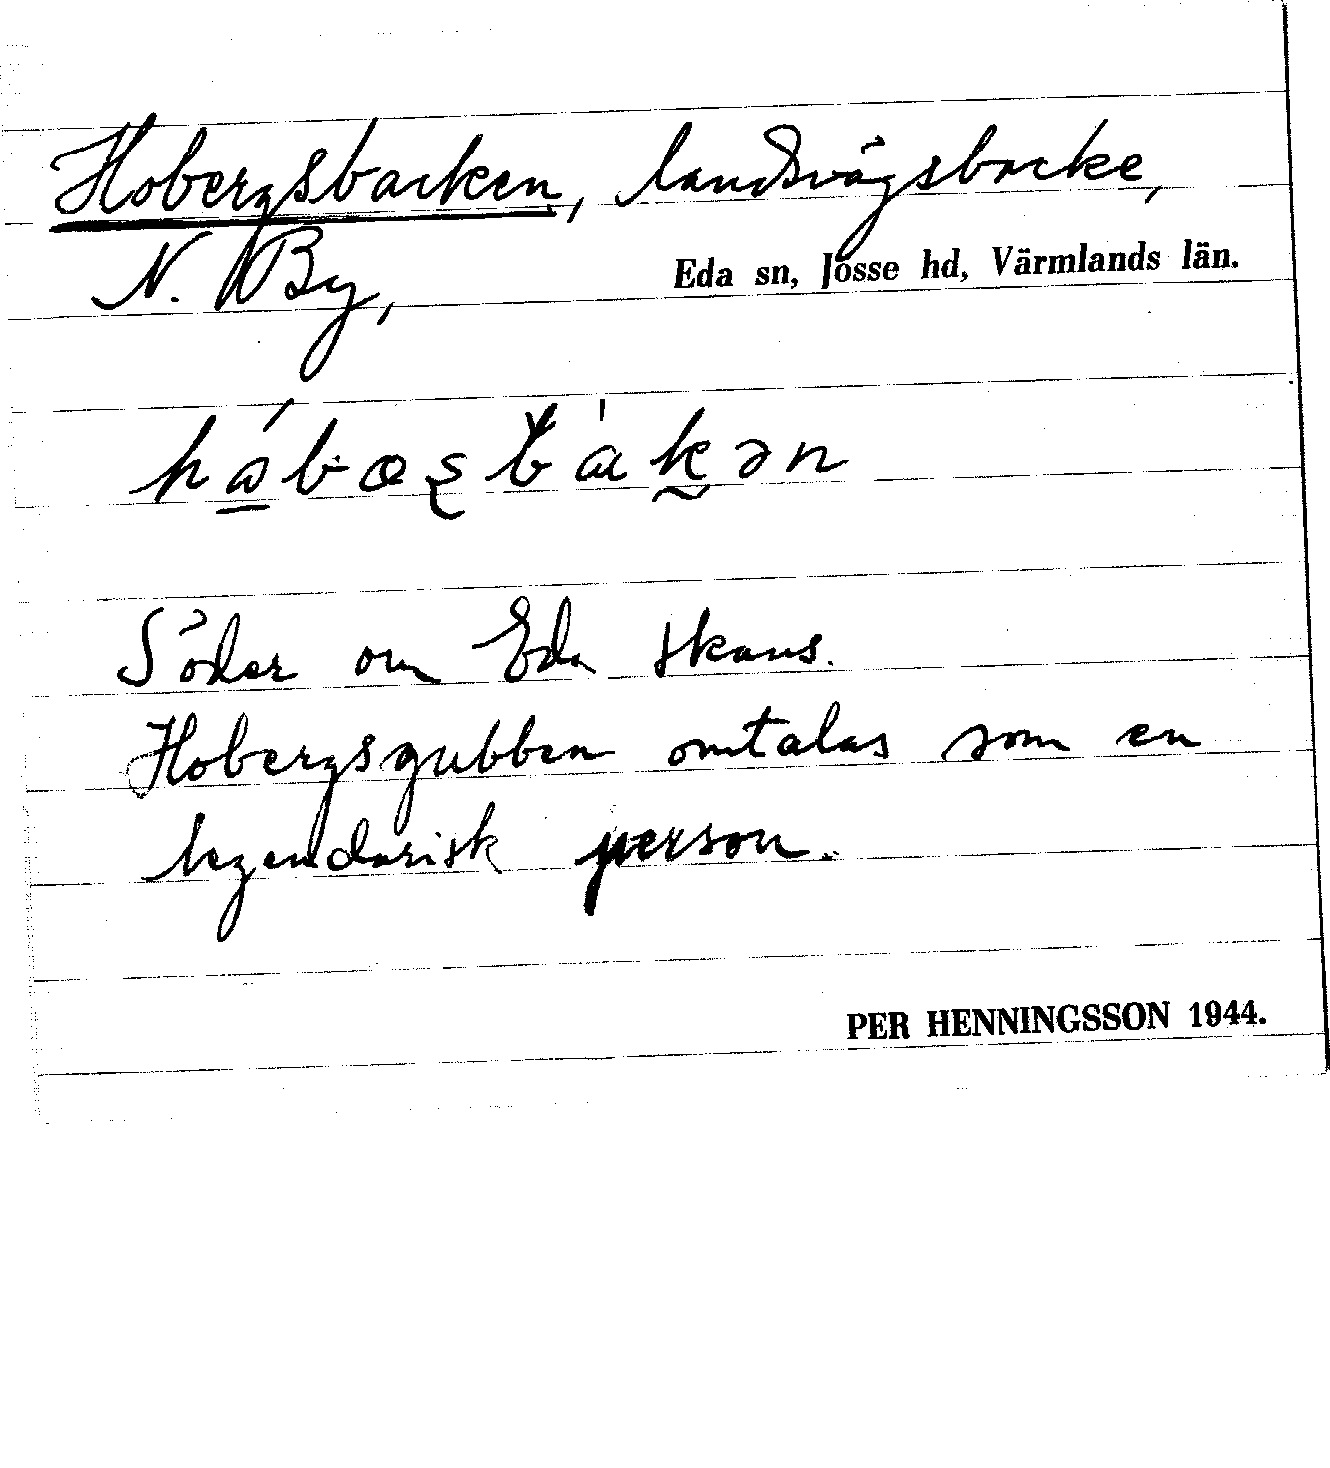 Hobergsbacken, landsvägsbacke,
N. By,
Eda sn, Jösse hd, Värmlands län.
Söder om Eda skans.
Hobergsgubben omtalas som en
legendarisk person.
PER HENNINGSSON 1944.